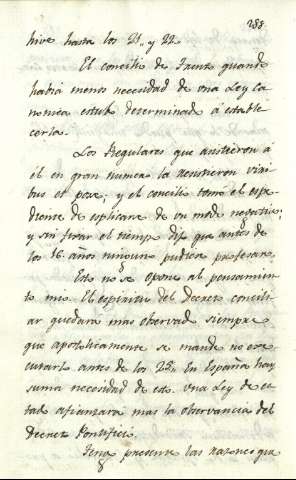 288
hive hasta los 21,, y 22.
El concilio de Trento quando
habia menos necesidad de una Ley ca
nonica estubo determinado á estable
cerla.
Los Regulares que asistieron á
el en gran numero la resistieron viri
bus et posse; y el concilio tomó el espe
diente de esplicarse de un modo negativo;
y sin firar el tiempo dijo que antes de
los 16. años ninguno pudiera profesar.
Esto no se opone al pensamien
to mio. El espiritu del Decreto concili
ar quedara mas observado siempre
que apostolicamente se mande no exe
cutarlo antes de los 25,, En España hay
suma necesidad de esto. Una Ley de e
tad afianzara mas la observancia del
Decreto Pontificio.
Tengo presente las razones que